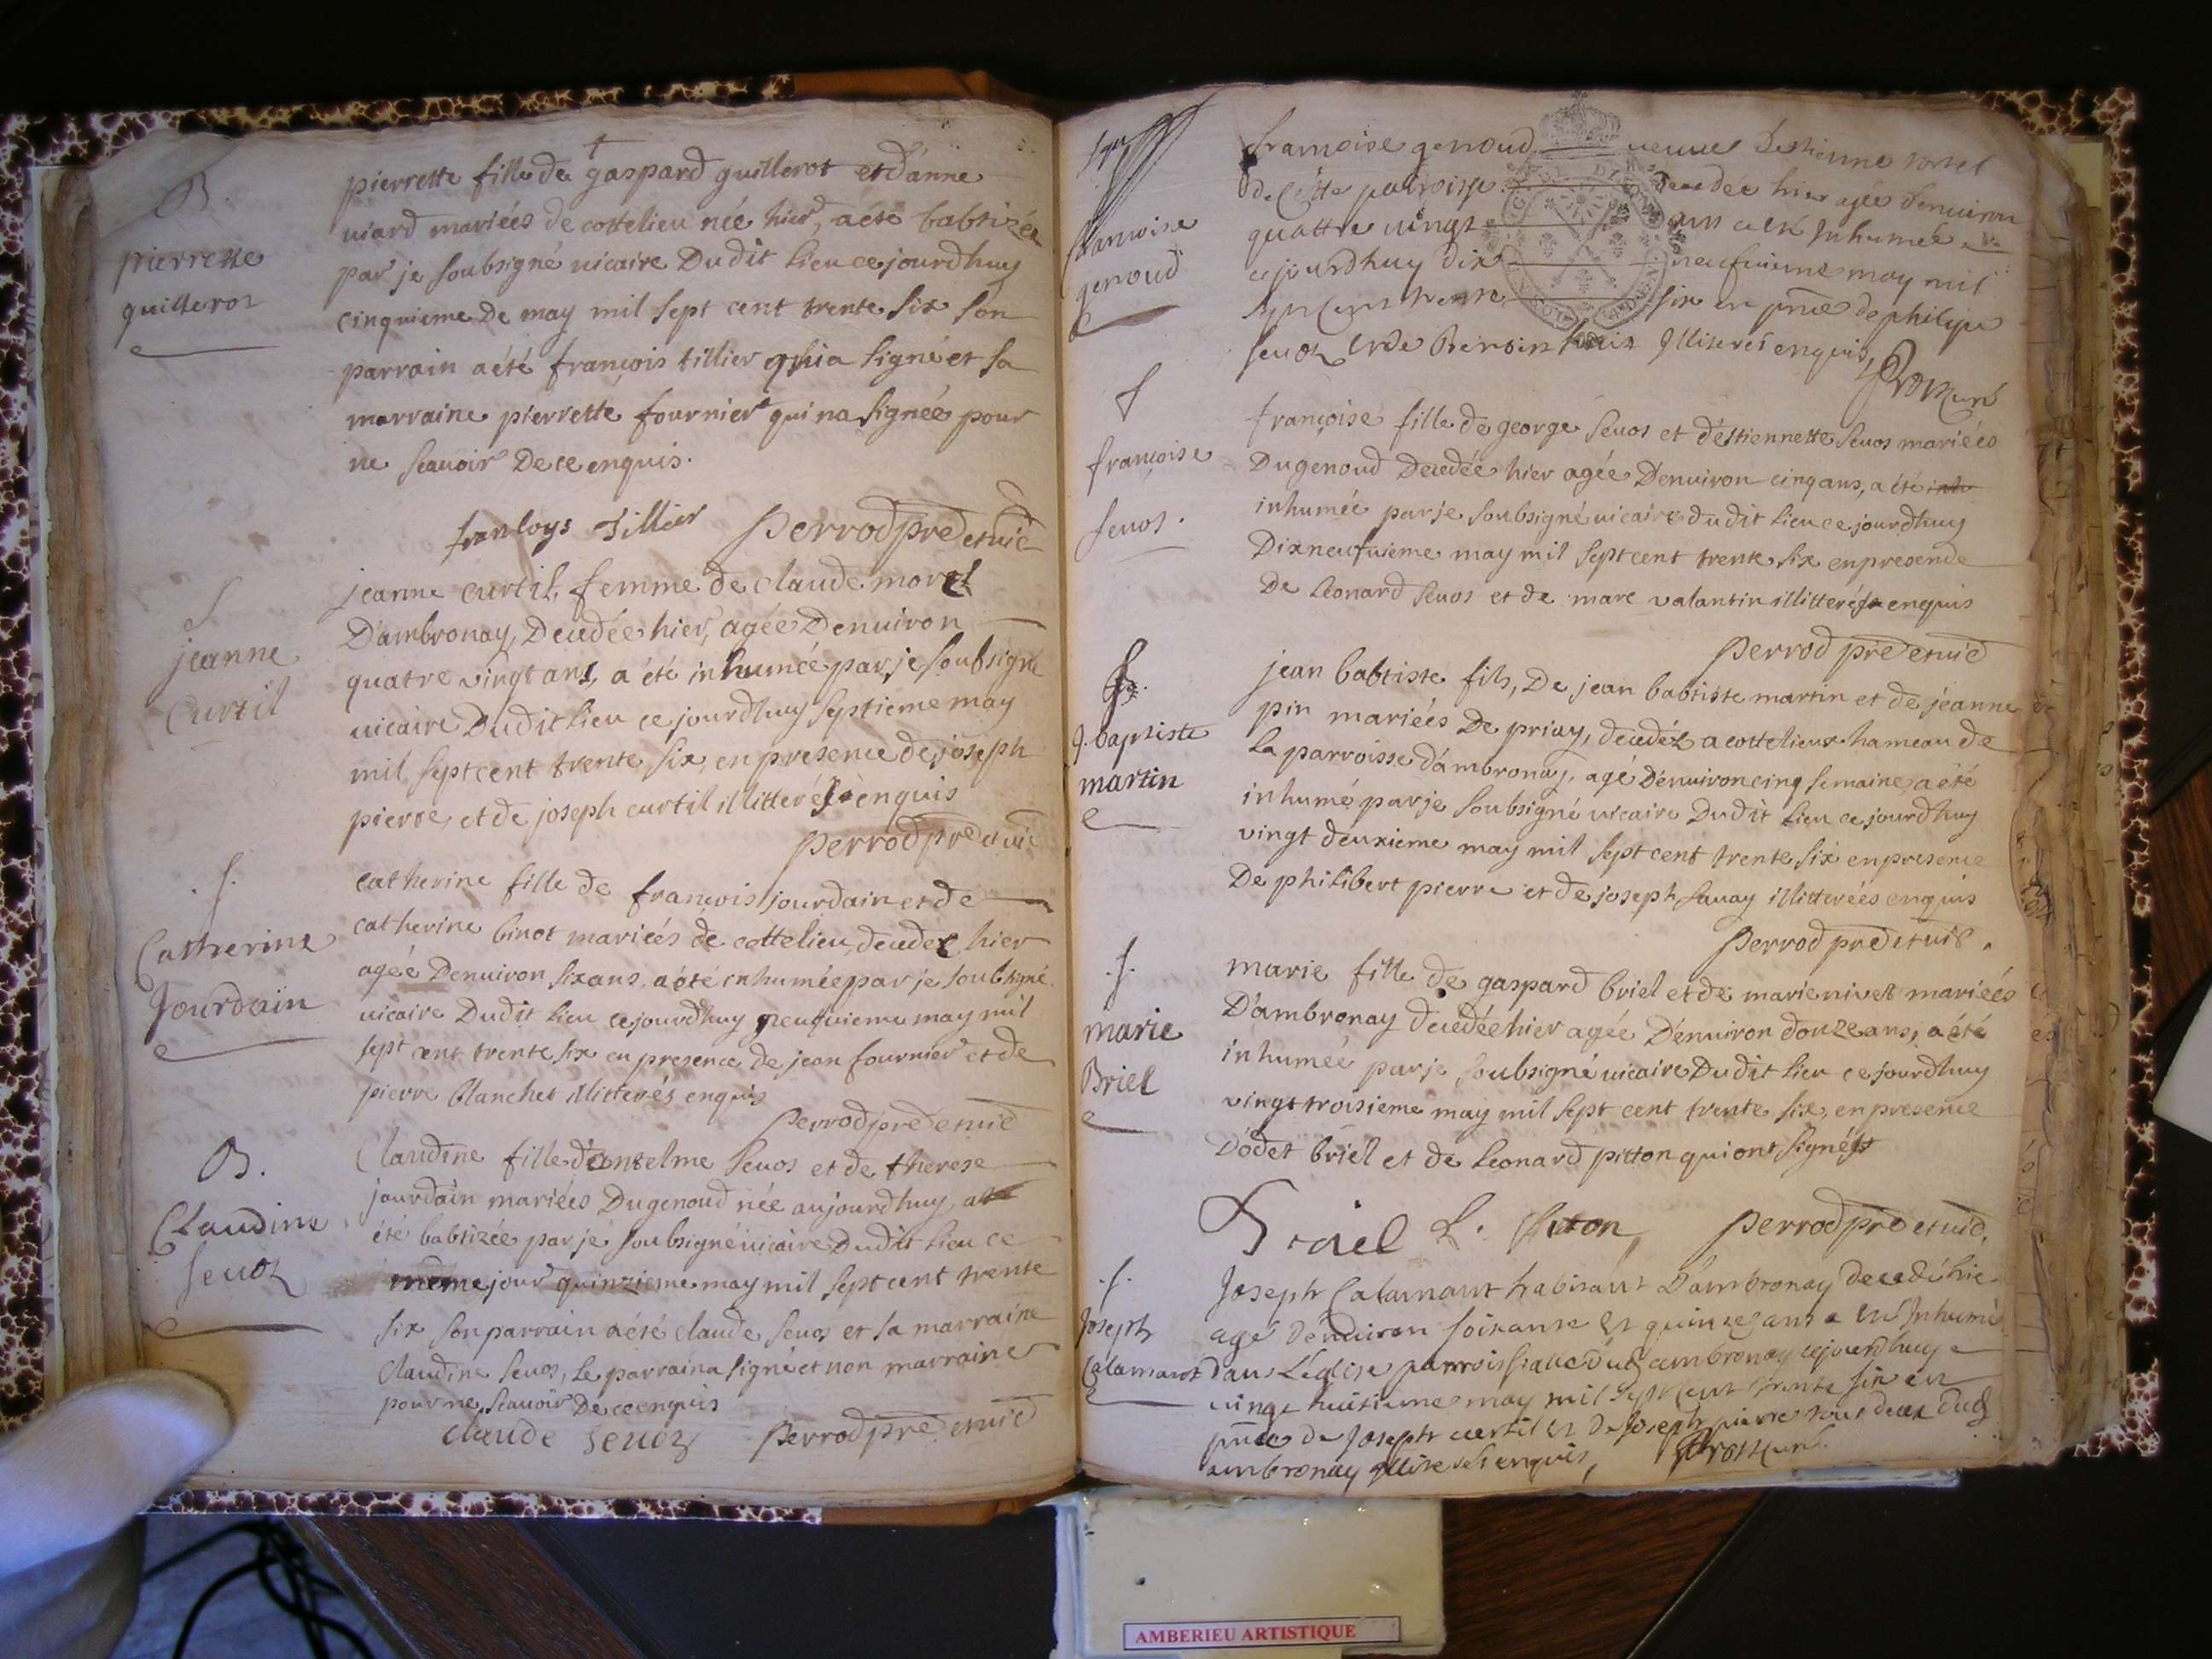 B.
pierrette
guillerot
pierrette fille de gaspard guillerot et d'anne
uiard mariées de cottelieu née hier, a été babtizée
par je soubsigné uicaire Dudit lieu ce jourdhuy
cinquieme De may mil sept cent trente six son
parrain a été françois tillier qui a signé et sa
marraine pierrette fournier qui na signée pour
ne scauoir De ce enquis.
franloys Tillier Perrod prê et uic
S
jeanne
Curtil
jeanne curtil, femme de claude morel
D'ambronay, Decedée hier, agée Denuiron
quatre vingt ans, a été inhumée par je soubsigné
uicaire Dudit lieu ce jourdhuy septieme may
mil sept cent trente six, en presence de joseph
pierre, et de joseph curtil illitterés enquis
Perrod prê et uic
.S.
Catherine
Jourdain
catherine fille de francois jourdain et de
catherine binot mariées de cottelieu, decedée hier
agée Denuiron six ans, a été inhumée par je soubsigné
uicaire Dudit lieu ce jourdhuy neuquieme may mil
sept cent trente six en presence de jean fournier et de
pierre blanchet illitterés enquis
Perrod prê et uic
B.
Claudine
Seuoz
Claudine fille d'antelme seuos et de therese
jourdain mariées Dugenoud née aujourdhuy, a
été babtizée par jé soubsigné uicaire Dudit lieu ce
même jour quinzieme may mil sept cent trente
six son parrain a été claude seuos et sa marraine
Claudine seuos, Le parrain a signé et non marraine
pour ne scauoir De ce enquis
claude seuoz Perrod prê et uic
francoise
genoud
francoise genoud ueuue destienne
de Cette paroisse decedée hier agée denuiron
quattre uingt ans a esté Inhumée
cejourdhuy dix neufuieme may mil
sept cent trente six en pnce de philipe
seuoz et de Illiterés enquis,
S
françoise
seuos.
françoise fille de george seuos et d'éstiennette seuos mariées
Dugenoud Decedée hier agée Denuiron cinq ans, a été
inhumée par je soubsigné uicaire dudit lieu ce jourdhuy
Dixneufuieme may mil sept cent trente six en presence
De Leonard seuos et de marc valantin illitterés enquis
Perrod prê et uic
S.
J. baptiste
martin
jean babtiste fils, De jean babtiste martin et de jéanne
pin mariées De priay, decedéz a cottelieux hameau de
La parroisse d'ambronay, agé Dénuiron cinq semaine, a été
inhumé par je soubsigné uicaire Dudit Lieu ce jourdhuy
vingt deuxieme may mil sept cent trente six en presence
De philibert pierre et de joseph sauay illitterées enquis
Perrod prê et uic.
.S.
marie
Briel
marie fille de gaspard briel et de marie nivet mariées
D'ambronay decedée hier agée D'enuiron douze ans, a été
inhumée par je soubsigné uicaire Dudit Lieu ce jourdhuy
vingt troisieme may mil sept cent trente six, en presence
D'odet briel et de Leonard pitton qui ont signés
Briel L. Piton Perrod prê et uic.
.S.
Joseph
Calamant
Joseph Calamant habitant D'ambronay decedé hie
agé denuiron soixante et quinze ans a esté Inhumé
dans Léglise parroissialle dud ambronay cejourdhuy
uingt huitieme may mil sept cent trente six en
pnce de Joseph curtil et de Joseph pierre tous deux dud
ambronay Illiterés enquis,
AMBERIEU ARTISTIQUE